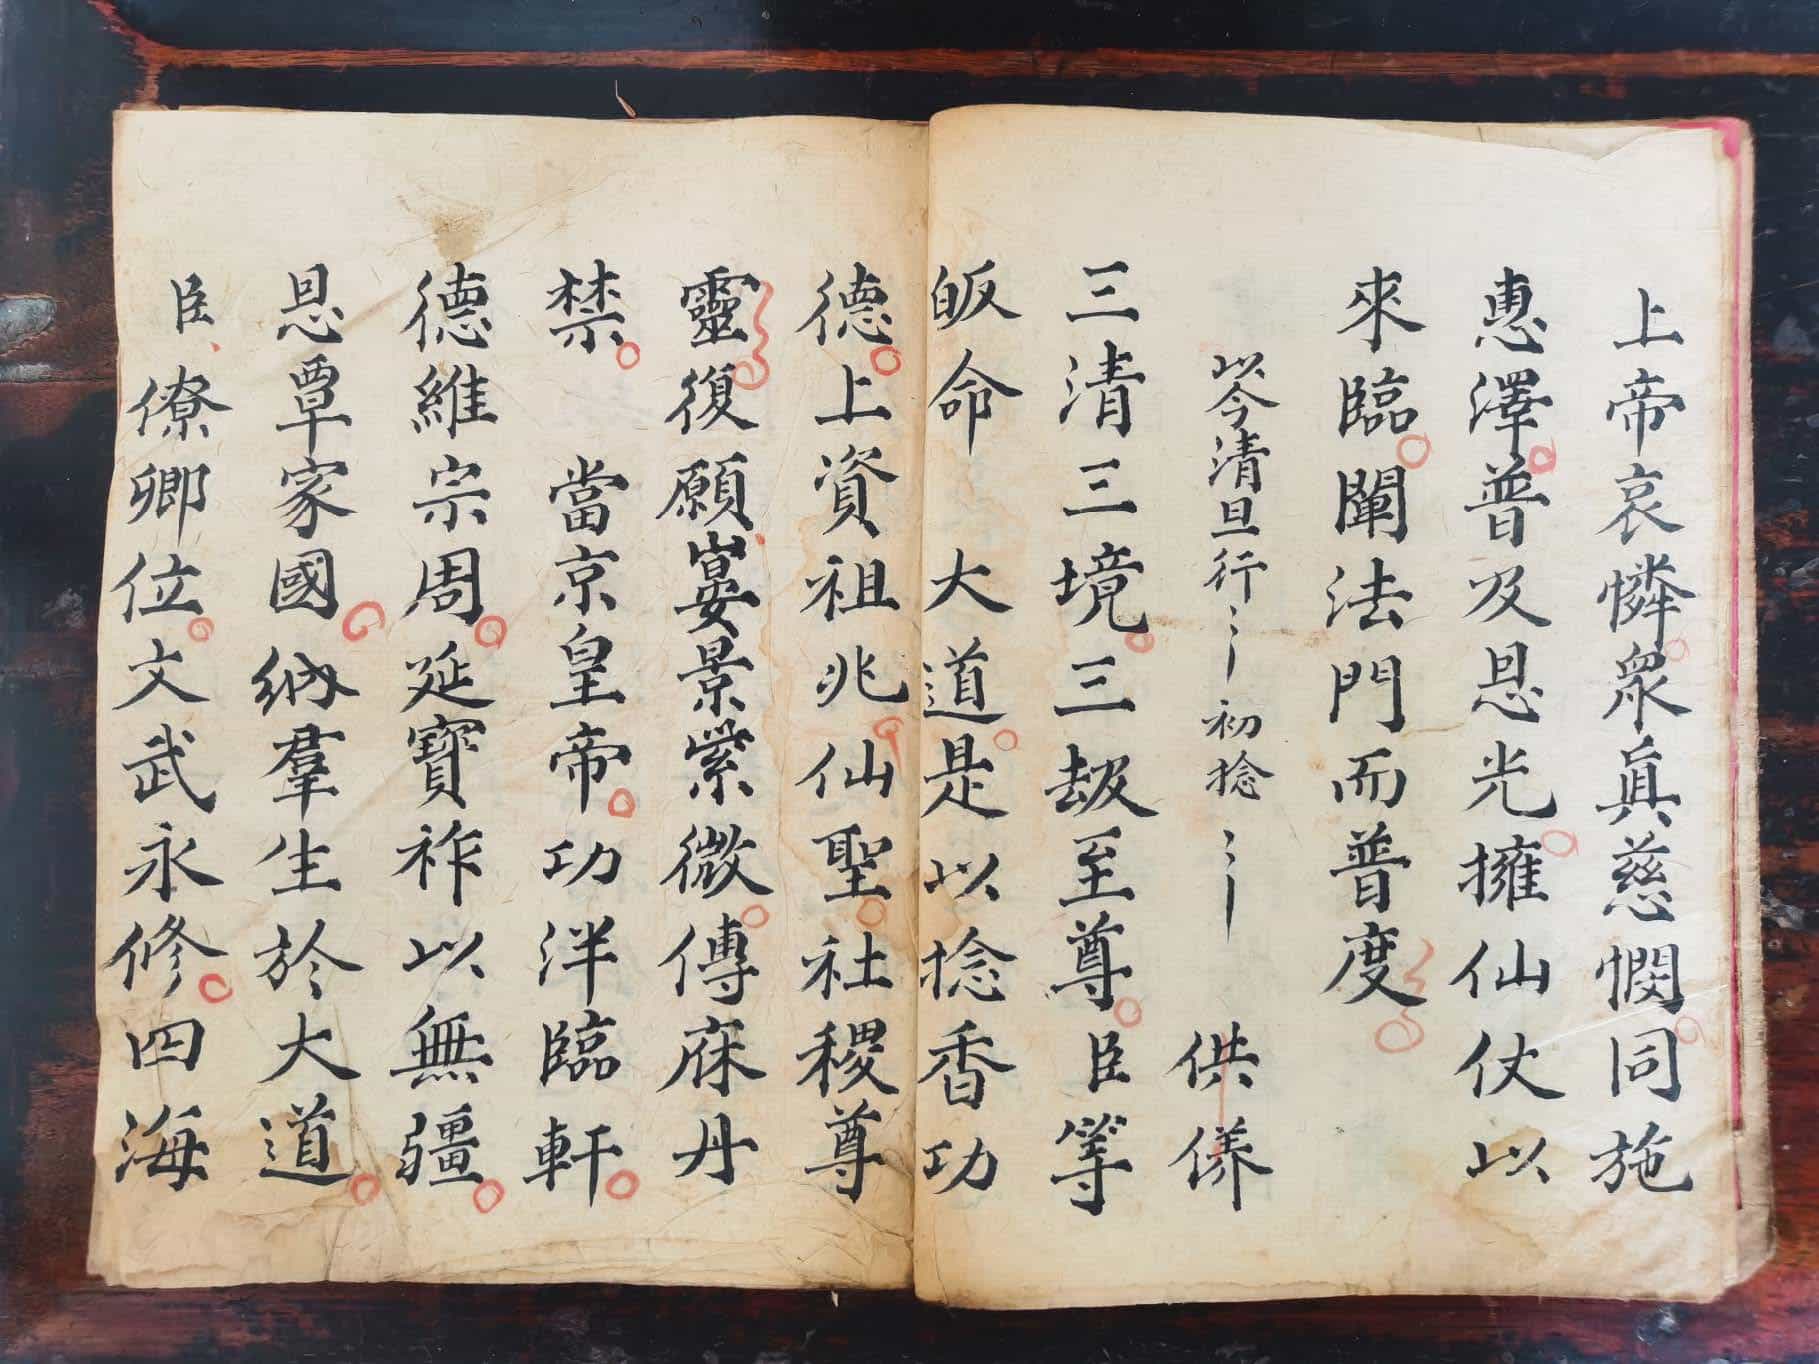 上帝哀憐衆眞慈憫同施
恵澤普及恩光擁仙仗以
來臨闡法門而普度
以今清旦行〻丨初捻〻丨 供養
三清三境三劫至尊臣等
皈命 大道是以捻香功
德上資祖兆仙聖社稷尊
靈復願宴景紫微傳庥丹
禁 當京皇帝功洋臨軒
德維宗周延寶祚以無疆
恩覃家國納羣生於大道
臣僚卿位文武永修四海